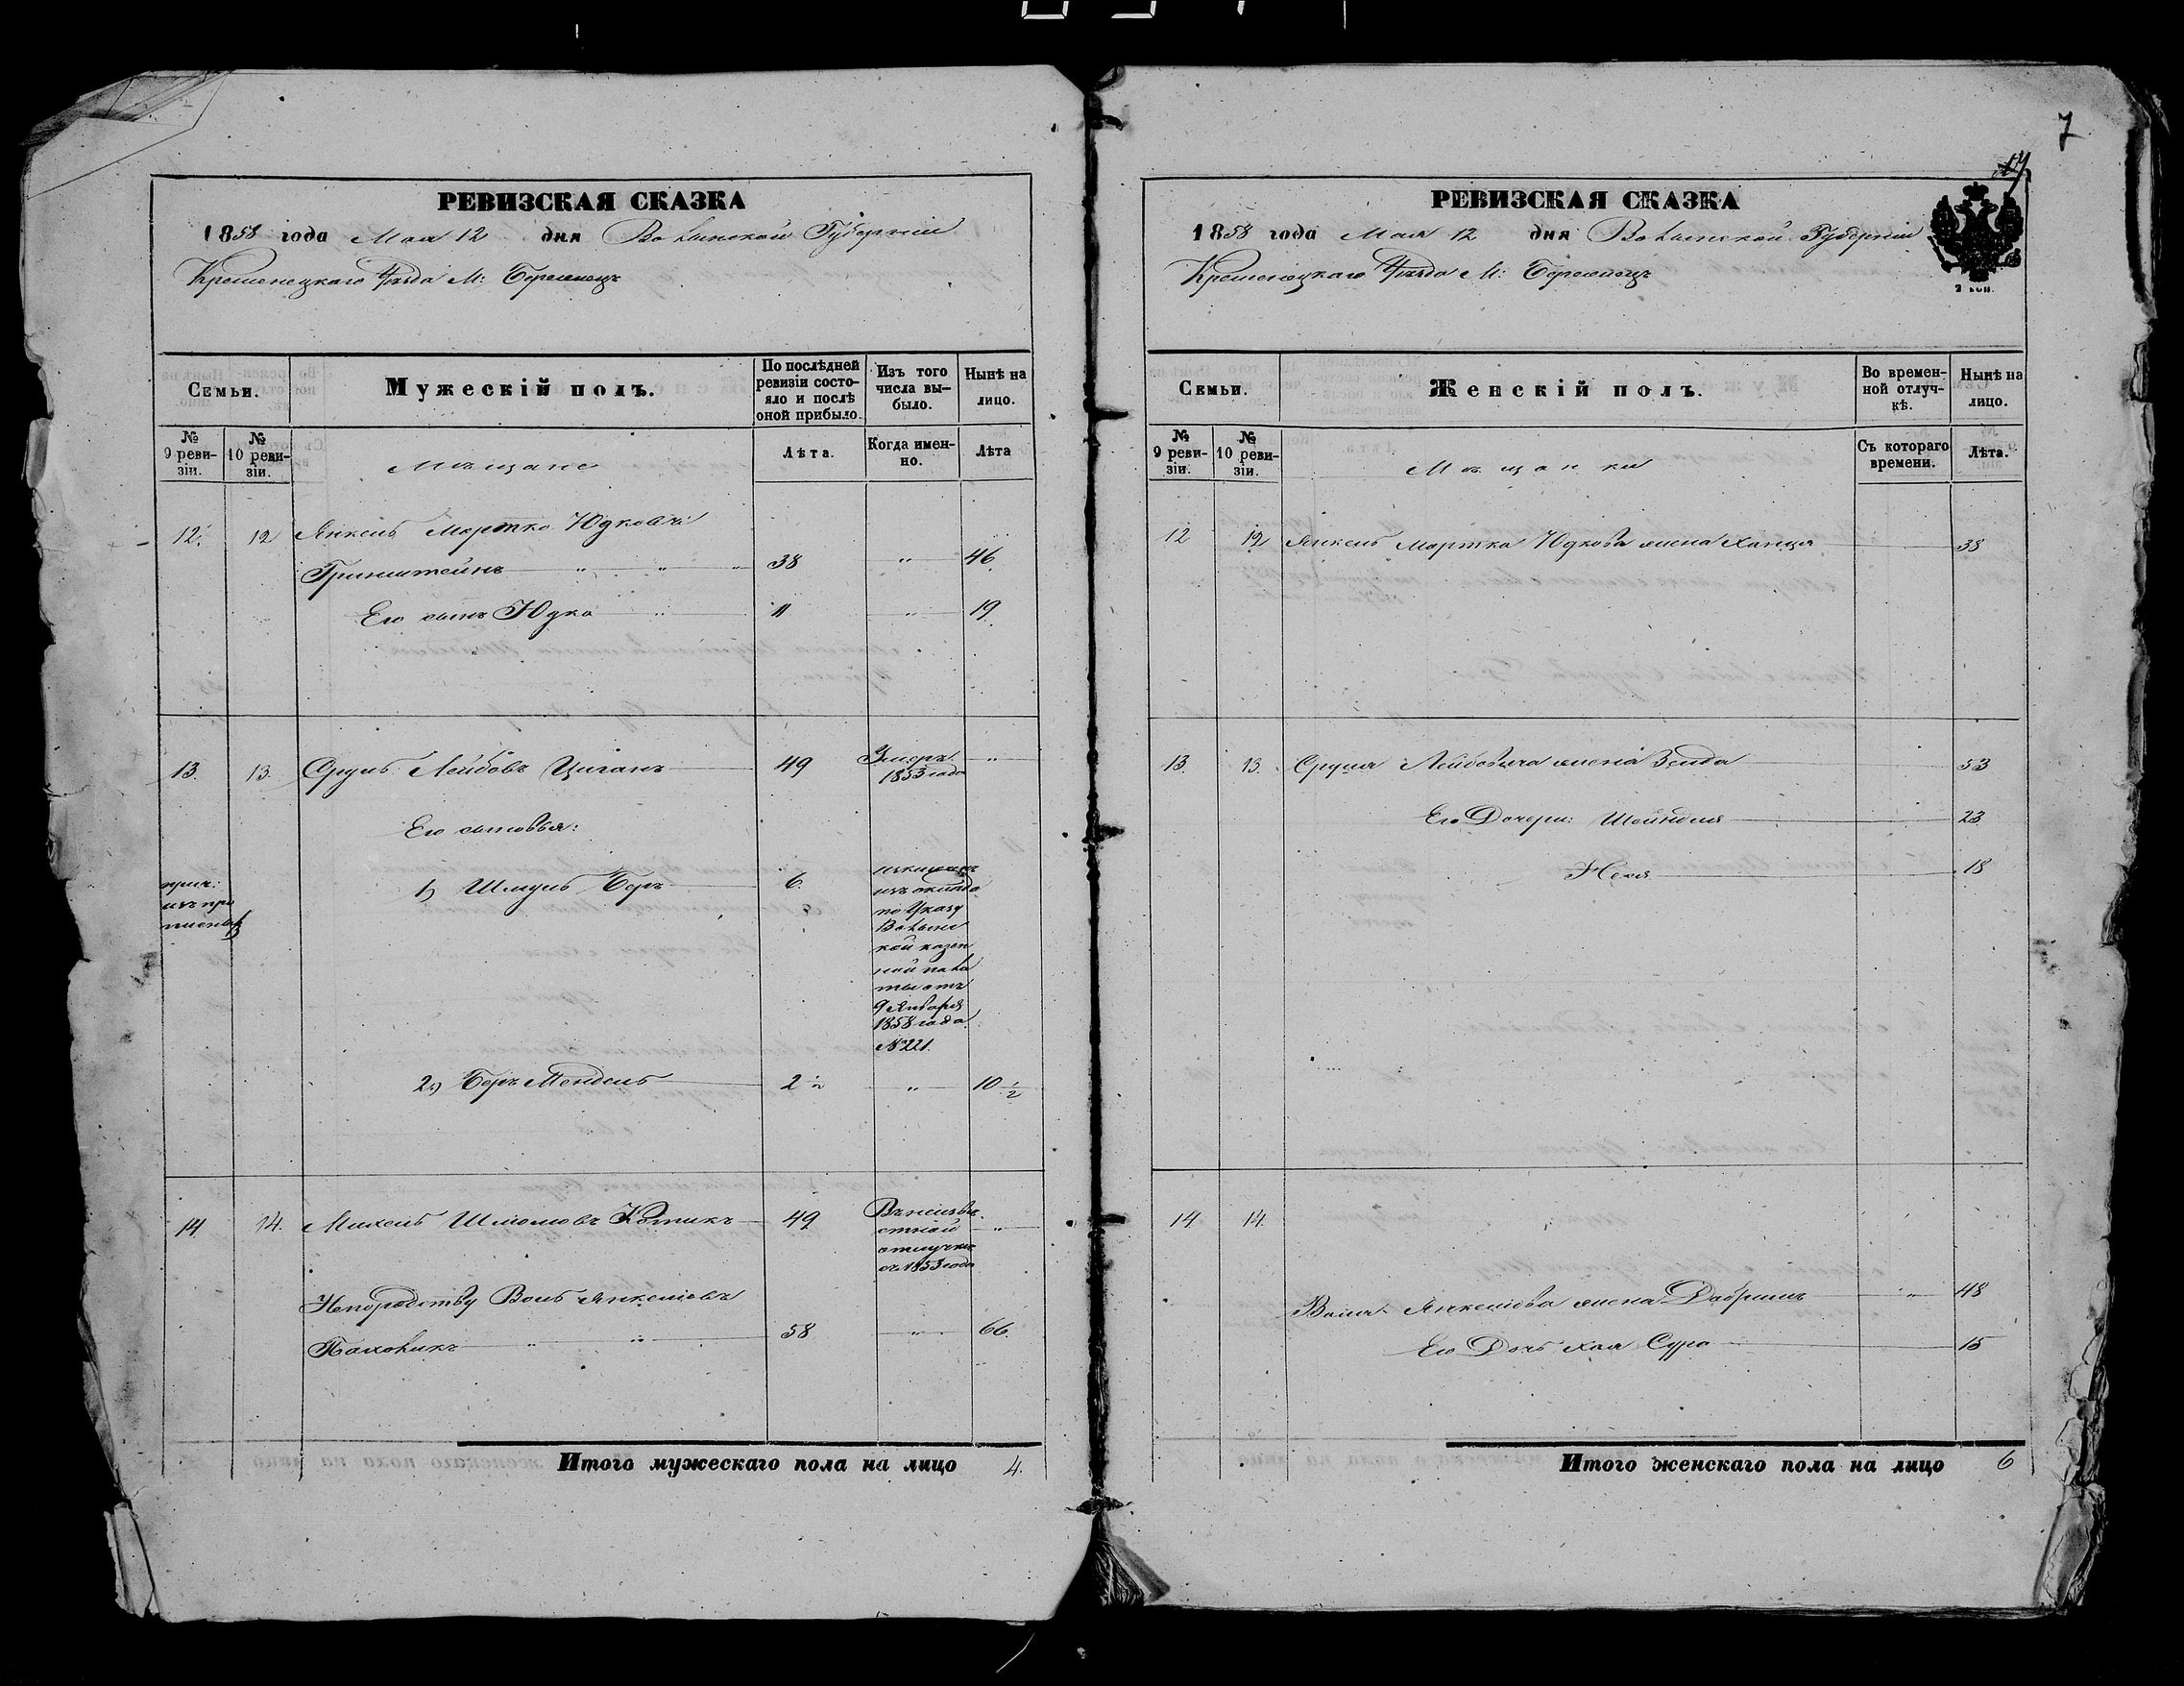 7
РЕВИЗСКАЯ СКАЗКА
1858 года Мая 12 дня Волынской Губерніи
Кременецкаго Уѣзда М: Бережецъ
Семьи.
Мужескій полъ.
По послѣдней ревизіи состояло и послѣ оной прибыло.
Изъ того числа выбыло.
Нынѣ на лицо.
№ 9 ревизіи.
№ 10 ревизіи.
Мѣщане
Лѣта.
Когда именно.
Лѣта
12. 12 Янкель Мортко Юдковъ
Гринштейнъ 38 " 46.
Его сынъ Юдко 11 " 19.
13. 13. Сруль Лейбовъ Циганъ 49 Умеръ "
1853 года
Его сыновья:
1) Шмуль Беръ 6.
изъ оклада
по Указу
Волынс
кой казен
ной пала
ты отъ
9 Января
1858 года
№ 221.
2) Беръ Мендель 2 ½ " 10 ½
14. 14. Михель Шлиомовъ Котикъ 49 Въ неизвѣ
стной "
отлучкѣ
съ 1853 года
Непородству Воль Янкеліовъ
58 " 66.
Итого мужескаго пола на лицо 4.
РЕВИЗСКАЯ СКАЗКА
1858 года Мая 12 дня Волынской Губерніи
Кременецкаго Уѣзда М: Бережецъ
Семьи.
Женскій полъ.
Во временной отлучкѣ.
Нынѣ на лицо.
№ 9 ревизіи.
№ 10 ревизіи.
Мѣщанки
Съ котораго времени.
Лѣта.
12 12 Янкель Мортка Юдкова жена Ханця 38
13. 13. Сруля Лейбовича жена Зелда 53
Его Дочери: Шейндля 23
Неха 18
14 14.
Воля Янкеліова жена Добришъ " 48
Его Дочь Хая Сура 15
Итого женскаго пола на лицо 6